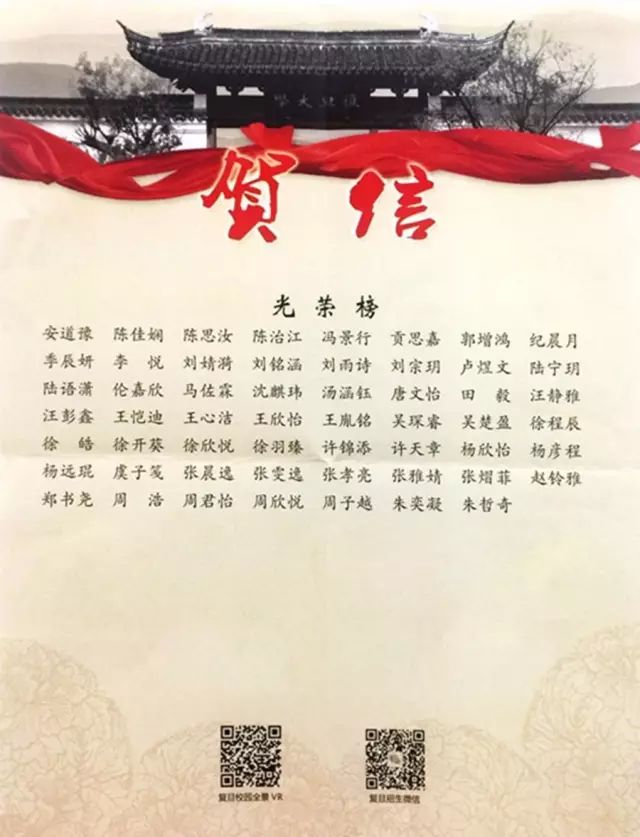 復旦大學
贺信
光荣榜
安道豫 陈佳娴 陈思汝 陈治江 冯景行 贡思嘉 郭增鸿 纪晨月
季辰妍 李悦 刘婧漪 刘铭涵 刘雨诗 刘宗玥 卢煜文 陆宁玥
陆语潇 伦嘉欣 马佐霖 沈麒玮 汤涵钰 唐文怡 田毅 汪静雅
汪彭鑫 王恺迪 王心洁 王欣怡 王胤铭 吴琛睿 吴楚盈 徐程辰
徐皓 徐开葵 徐欣悦 徐羽臻 许锦添 许天章 杨欣怡 杨彦程
杨远琨 虞子笺 张晨逸 张雯逸 张孝亮 张雅婧 张熠菲 赵铃雅
郑书尧 周浩 周君怡 周欣悦 周子越 朱奕凝 朱哲奇
复旦校园全景VR
复旦招生微信